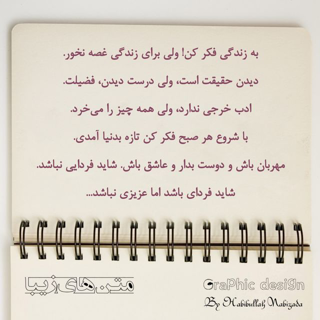 به زندگی فکر کن! ولی برای زندگی غصه نخور.
دیدن حقیقت است، ولی درست دیدن، فضیلت.
ادب خرجی ندارد، ولی همه چیز را می‌خرد.
با شروع هر صبح فکر کن تازه بدنیا آمدی.
مهربان باش و دوست بدار و عاشق باش. شاید فردایی نباشد.
شاید فردای باشد اما عزیزی نباشد...
متن های زیبا
GraPhic desi9n
By Habibullah Nabizada